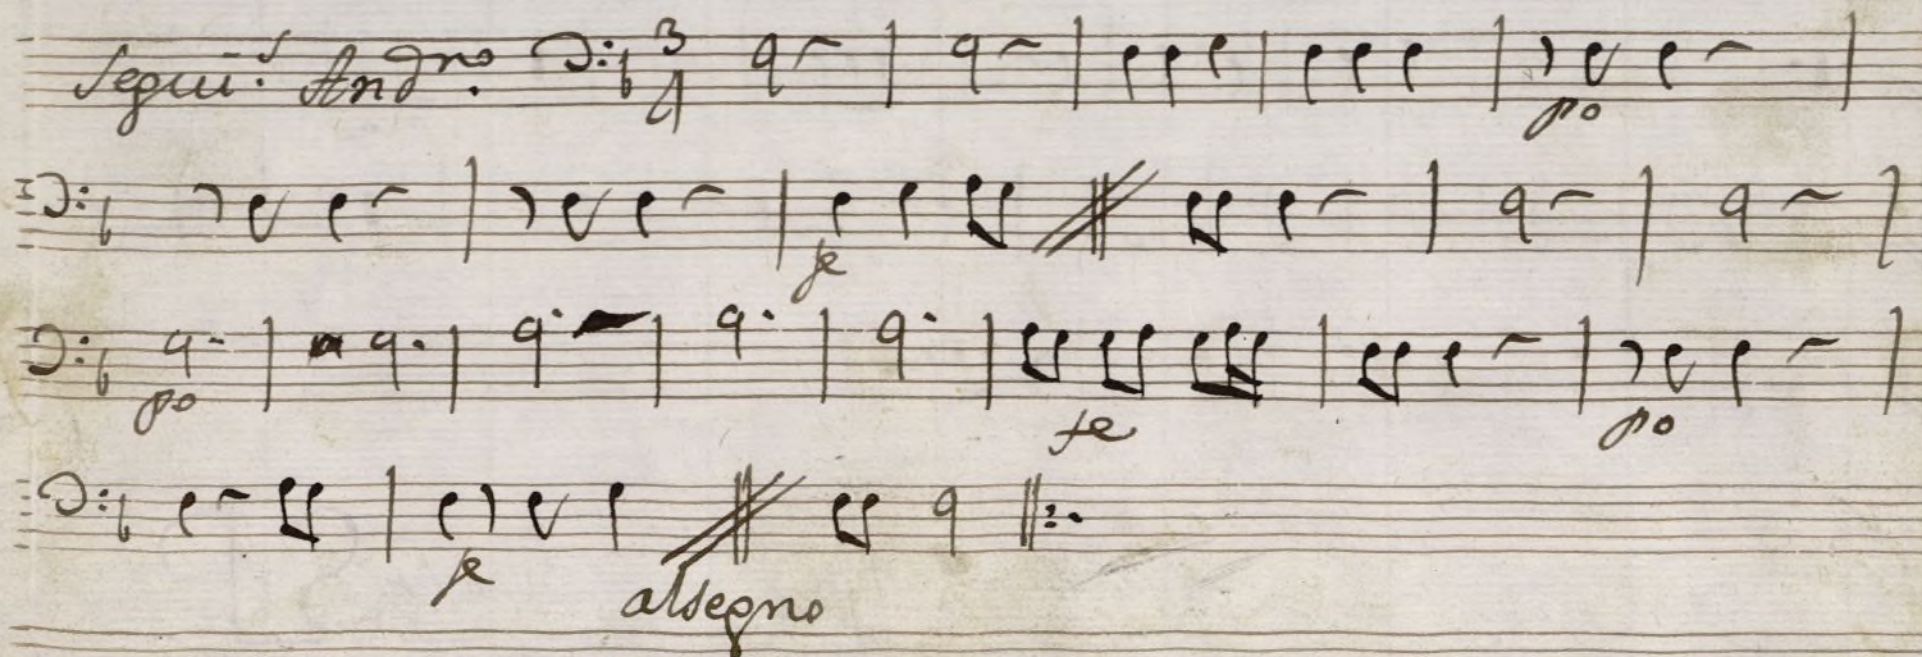 Seguii. And.no 3/4
po
fe
po fe po
fe alsegno